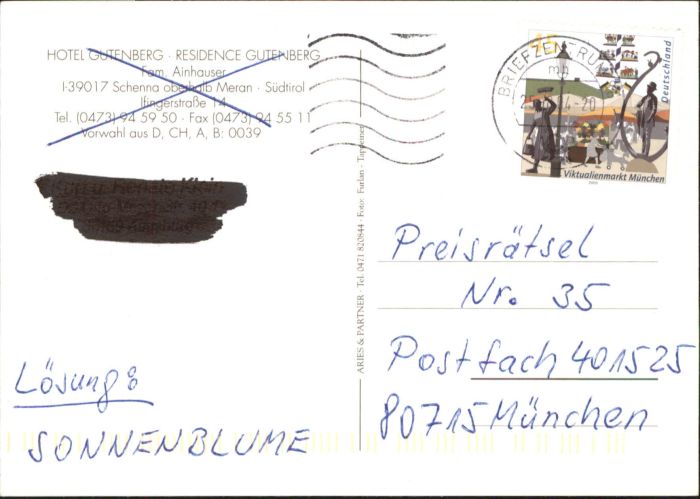 HOTEL GUTENBERG · RESIDENCE GUTENBERG
Fam. Ainhauser
I-39017 Schenna oberhalb Meran · Südtirol
Ifingerstraße 14
Tel. (0473) 94 59 50 · Fax (0473) 94 55 11
Vorwahl aus D, CH, A, B: 0039
Lösung:
SONNENBLUME
ARIES & PARTNER · Tel. 0471 820844 · Foto: Furlan · Tappeiner
BRIEFZENTRUM
45
Deutschland
Viktualienmarkt München
Preisrätsel
Nr. 35
Postfach 401525
80715 München